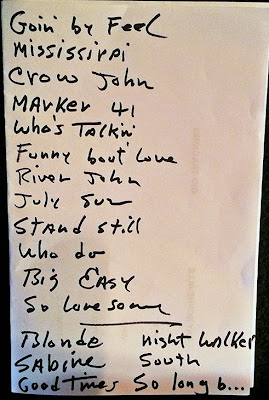 Goin' by Feel
Mississippi
Crow John
Marker 41
Who's Talkin'
Funny bout' Love
River John
July sun
Stand still
Who do
Big Easy
So lonesome
Blonde night walker
Sabine South
Good Times So long b...